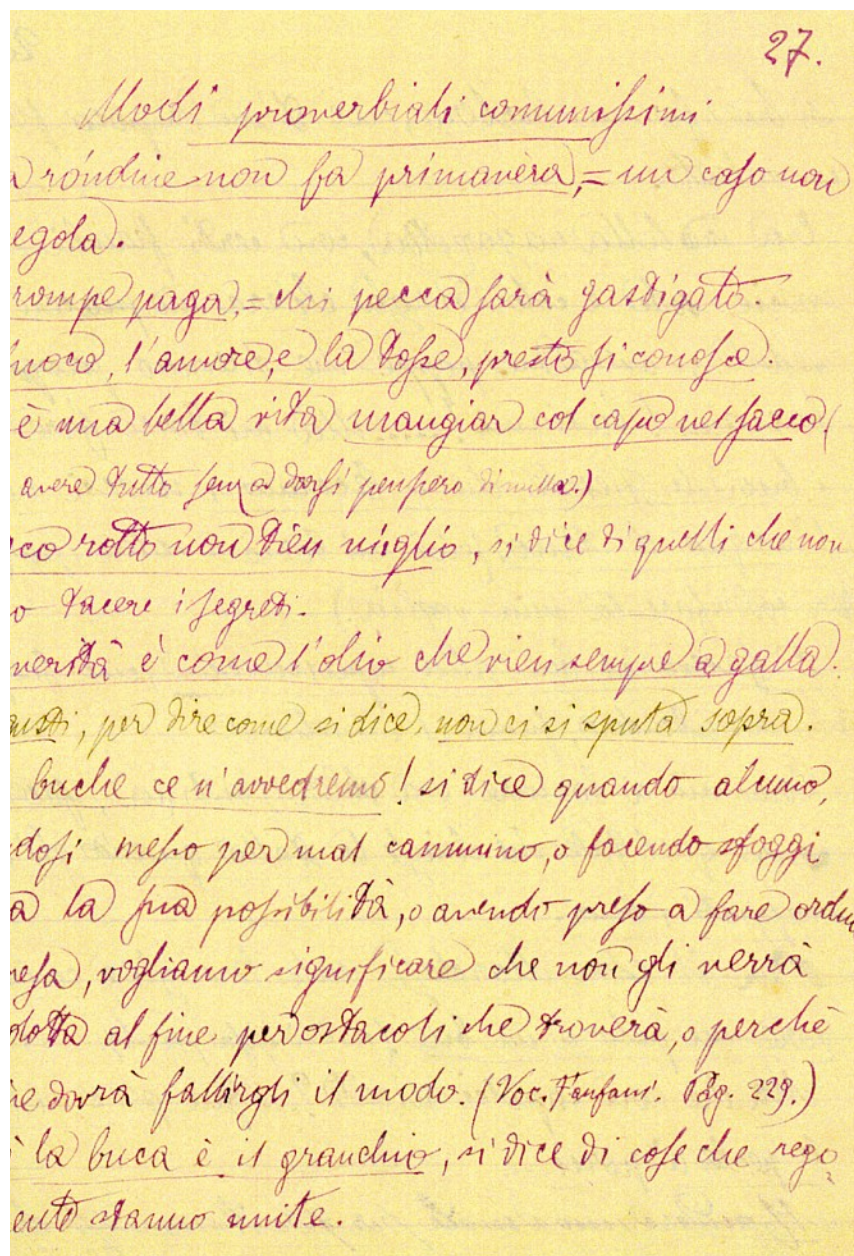 27.
Modi proverbiali comunissimi
a róndine non fa primavèra, = un caso non
egola.
rompe paga, = chi pecca sarà gastigato.
uoco, l'amore, e la tosse, presto si conosce.
è una bella vita mangiar col capo nel sacco (
avere tutto senza darsi pensiero di nulla.)
cco rotto non tien miglio, si dice di quelli che non
o tacere i segreti.
verità è come l'olio che vien sempre a galla.
usti, per dire come si dice, non ci si sputa sopra.
buche ce n'avvedremo! si dice quando alcuno,
dosi messo per mal cammino, o facendo sfoggi
a la sua possibilità, o avendo preso a fare ardu
resa, vogliamo significare che non gli verrà
dotta al fine per ostacoli che troverà, o perchè
ne dovrà fallirgli il modo. (Voc. Fanfani. Pag. 229.)
la buca è il granchio, si dice di cose che rego
ente stanno unite.